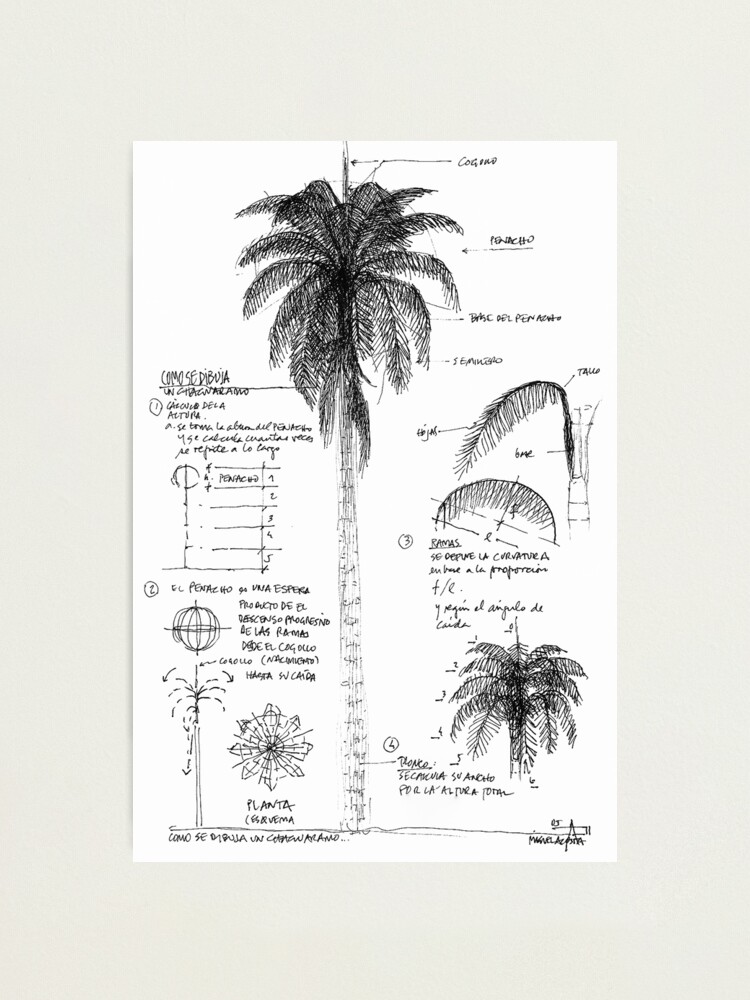 COGOLLO
PENACHO
BASE DEL PENACHO
SEMILLERO
COMO SE DIBUJA
UN CHAGUARAMO
1 CÁLCULO DE LA
ALTURA.
a. se toma la altura del PENACHO
y se calcula cuantas veces
se repite a lo largo
h. PENACHO 1
2
3
4
5
TALLO
HOJAS
BASE
f
l
3 RAMAS.
SE DEFINE LA CURVATURA
en base a la proporción
f/l.
y según el ángulo de
caída
0
1
2
3
4
5
6
2 EL PENACHO es UNA ESFERA
PRODUCTO DE EL
DESCENSO PROGRESIVO
DE LAS RAMAS
DESDE EL COGOLLO
COGOLLO (NACIMIENTO)
HASTA SU CAÍDA
PLANTA
(ESQUEMA
4 TRONCO:
SE CALCULA SU ANCHO
POR LA ALTURA TOTAL
COMO SE DIBUJA UN CHAGUARAMO...
MIGUEL ACOSTA